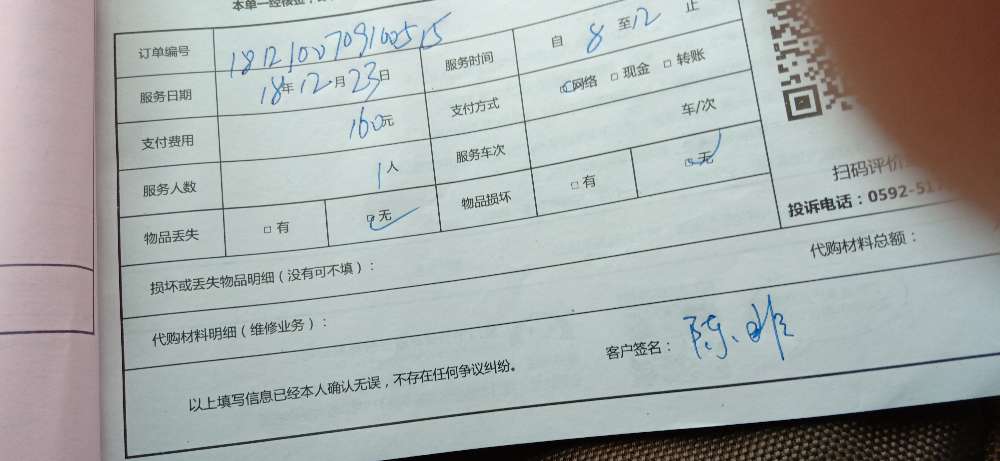 本单一经核
订单编号 1812100709100515
服务时间 自8至12止
服务日期 18年12月23日
支付方式 □网络 □现金 □转账
支付费用 160元
服务车次 车/次
服务人数 1人
物品损坏 □有 □无
物品丢失 □有 □无
扫码评价
投诉电话：0592-51
损坏或丢失物品明细（没有可不填）：
代购材料总额：
代购材料明细（维修业务）：
客户签名：陈
以上填写信息已经本人确认无误，不存在任何争议纠纷。